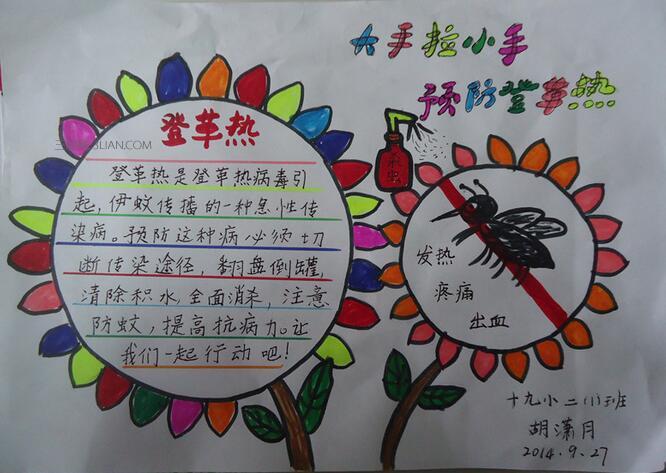 大手拉小手
预防登革热
登革热
登革热是登革热病毒引
起,伊蚊传播的一种急性传
染病。预防这种病必须切
断传染途径,翻盘倒罐,
清除积水,全面消杀,注意
防蚊,提高抗病力。让
我们一起行动吧!
杀虫
发热
疼痛
出血
十九小二(1)班
胡潇月
2014.9.27